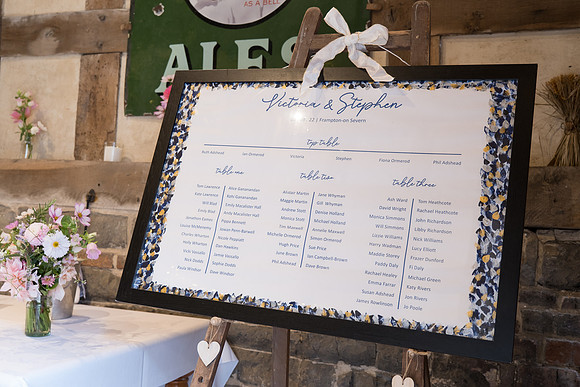 AS A BELL
ALES
Victoria & Stephen
22 | Frampton-on Severn
top table
Ruth Adshead
Ian Ormerod
Victoria
Stephen
Fiona Ormerod
Phil Adshead
table one
Tom Lawrence
Kate Lawrence
Will Bird
Emily Bird
Jonathan Owens
Chelsea Wotherspoon
Charles Wharton
Holly Wharton
Vicki Vassallo
Nick Dobbs
Paula Windsor
Alice Gananandan
Nishi Gananandan
Emily Macalister Hall
Andy Macalister Hall
Pippa Bonner
Ewan Penn-Barwell
Nicole Peasnell
Dan Hawkins
Jamie Vassallo
Sophie Dobbs
Dave Windsor
table two
Alistair Martin
Maggie Martin
Andrew Stott
Monica Stott
Tim Maxwell
Michelle Ormerod
Hugh Price
June Brown
Phil Adshead
Jane Whyman
Gill Whyman
Denise Holland
Michael Holland
Annette Maxwell
Simon Ormerod
Sue Price
Ian Campbell Brown
Dave Brown
table three
Ash Ward
David Wright
Monica Simmons
Will Simmons
Lizzie Williams
Harry Wadman
Maddie Storey
Paddy Daly
Rachael Healey
Emma Farrar
Susan Adshead
James Rowlinson
Tom Heathcote
Rachael Heathcote
John Richardson
Libby Richardson
Nick Williams
Lucy Elliott
Frazer Dunford
Fi Daly
Michael Green
Katy Rivers
Jon Rivers
Jo Poole